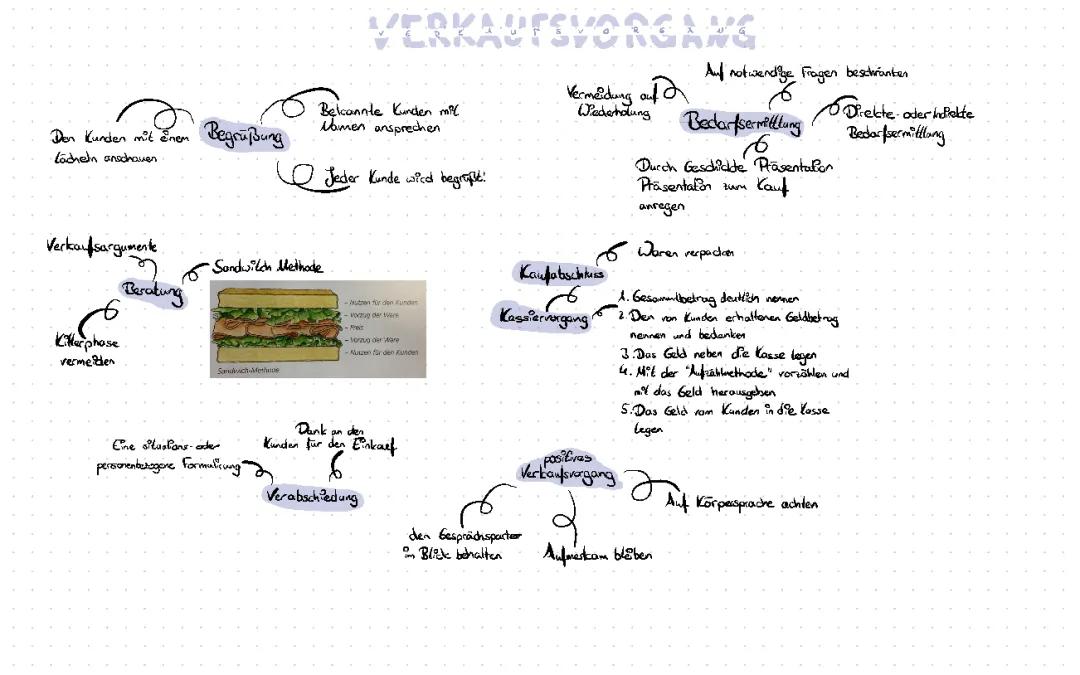 VERKAUFSVORGANG
VERKAUFSVORGANG
Begrüßung
Den Kunden mit einem
Lächeln anschauen
Bekannte Kunden mit
Namen ansprechen
Jeder Kunde wird begrüßt!
Bedarfsermittlung
Vermeidung auf
Wiederholung
Auf notwendige Fragen beschränken
Direkte- oder Indirekte
Bedarfsermittlung
Durch Geschickte Präsentation
Präsentation zum Kauf
anregen
Verkaufsargumente
Beratung
Sandwich Methode
Killerphase
vermeiden
– Nutzen für den Kunden
– Vorzug der Ware
– Preis
– Vorzug der Ware
– Nutzen für den Kunden
Sandwich-Methode
Kaufabschluss
Waren verpacken
Kassiervorgang
1. Gesammtbetrag deutlich nennen
2. Den von Kunden erhaltenen Geldbetrag
nennen und bedanken
3. Das Geld neben die Kasse legen
4. Mit der "Aufzählmethode" vorzählen und
mit das Geld herausgeben
5. Das Geld vom Kunden in die Kasse
legen
Eine situations- oder
personenbezogene Formulierung
Dank an den
Kunden für den Einkauf
Verabschiedung
positives
Verkaufsvorgang
den Gesprächspartner
im Blick behalten
Aufmerksam bleiben
Auf Körpersprache achten